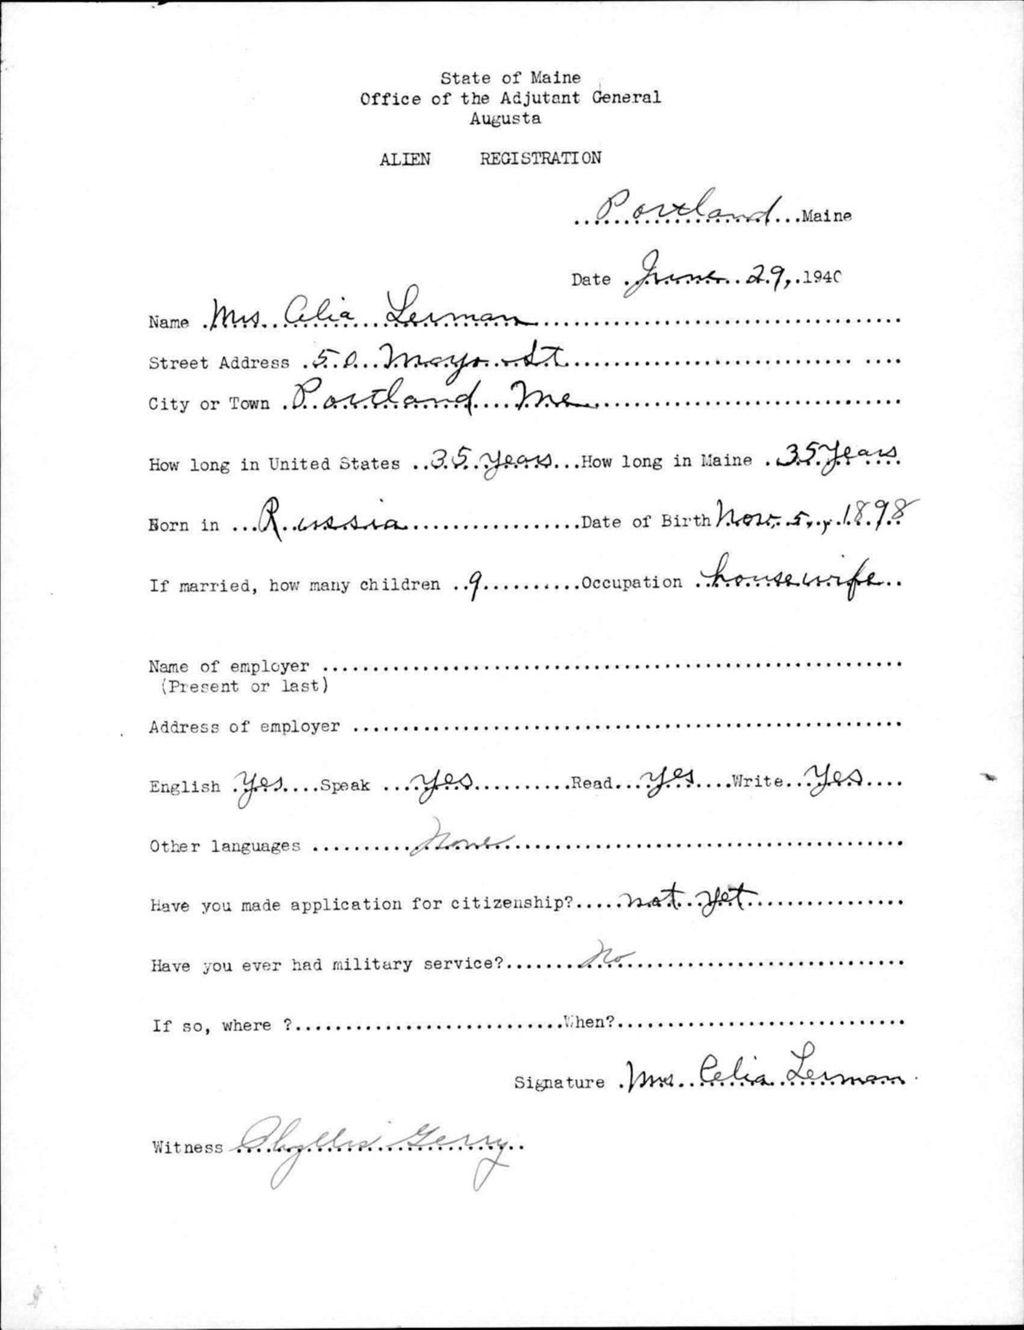 State of Maine
Office of the Adjutant General
Augusta
ALIEN REGISTRATION
Portland Maine
Date June 29, 1940
Name Mrs Celia Lerman
Street Address 50 Mayo St
City or Town Portland Me
How long in United States 35 years How long in Maine 35 years
Born in Russia Date of Birth Nov. 5, 1898
If married, how many children 9 Occupation housewife
Name of employer
(Present or last)
Address of employer
English Yes Speak Yes Read Yes Write Yes
Other languages None
Have you made application for citizenship? not yet
Have you ever had military service? No
If so, where ? When?
Signature Mrs Celia Lerman
Witness Phyllis Gerry